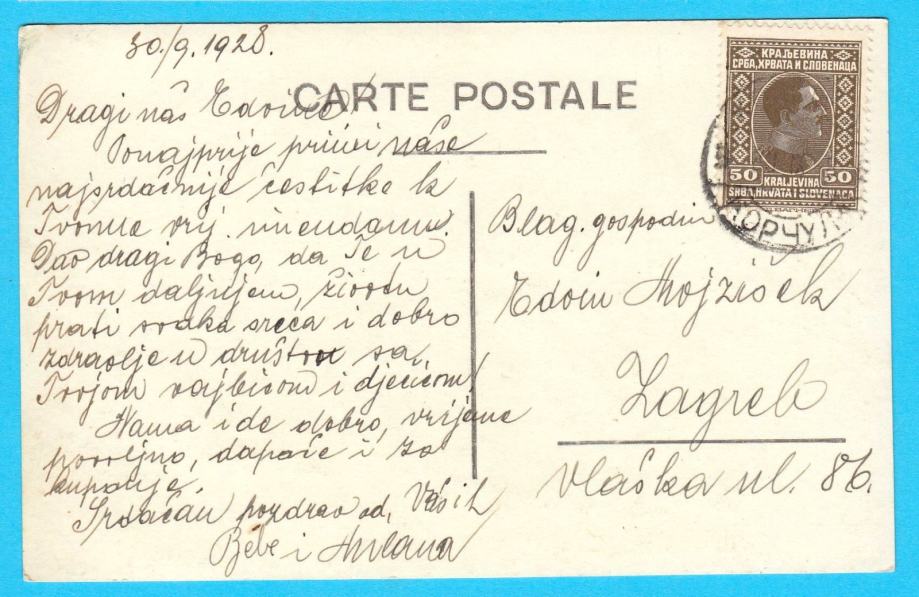 30./9. 1928.
CARTE POSTALE
Dragi naš Edvine!
Ponajprije primi naše
najsrdačnije čestitke k
Tvomu vrij. imendanu.
Dao dragi Bogo, da Te u
Tvom daljnjem, životu
prati svaka sreća i dobro
zdravlje u društvu sa
Tvojom i djecom!
Nama ide dobro, vrijeme
povoljno, dapače i za
kupanje.
Srdačan pozdrav od, Vaših
Bebe i
КРАЉЕВИНА
СРБА, ХРВАТА И СЛОВЕНАЦА
50 KRALJEVINA 50
SRBA, HRVATA I SLOVENACA
КОРЧУЛА
Blag. gospodin
Edvin Mojzišek
Zagreb
Vlaška ul. 86.